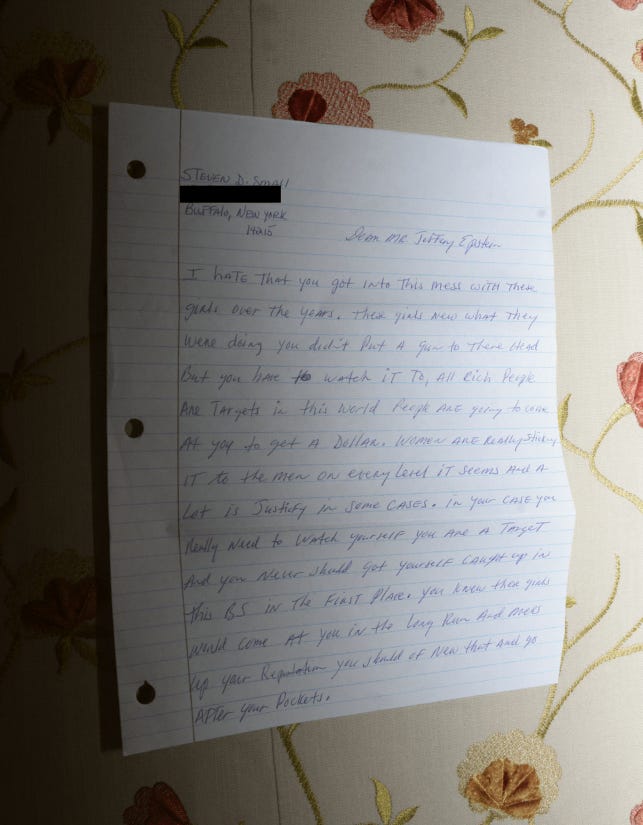 STEVEN D. Small
BUFFALO, NEW YORK
14215
Dear MR. Jeffery Epstein
I HATE THAT you got into This Mess WITH These
girls over the years. These girls New what They
Were doing you didn't Put A gun to There Head
But you have to watch iT To, All Rich People
Are Targets in this world People ARE going to come
At you to get A Dollar. Women ARE Really Sticking
IT to the men on every level it seems And A
Lot is Justify in Some CASES. In your CASE you
Really Need to Watch yourself you Are A Target
And you Never should got yourself caught up in
this BS in The First Place. you knew these girls
would come At you in the Long Run And mess
up your Reputation you should of New that And go
AFTer your Pockets.